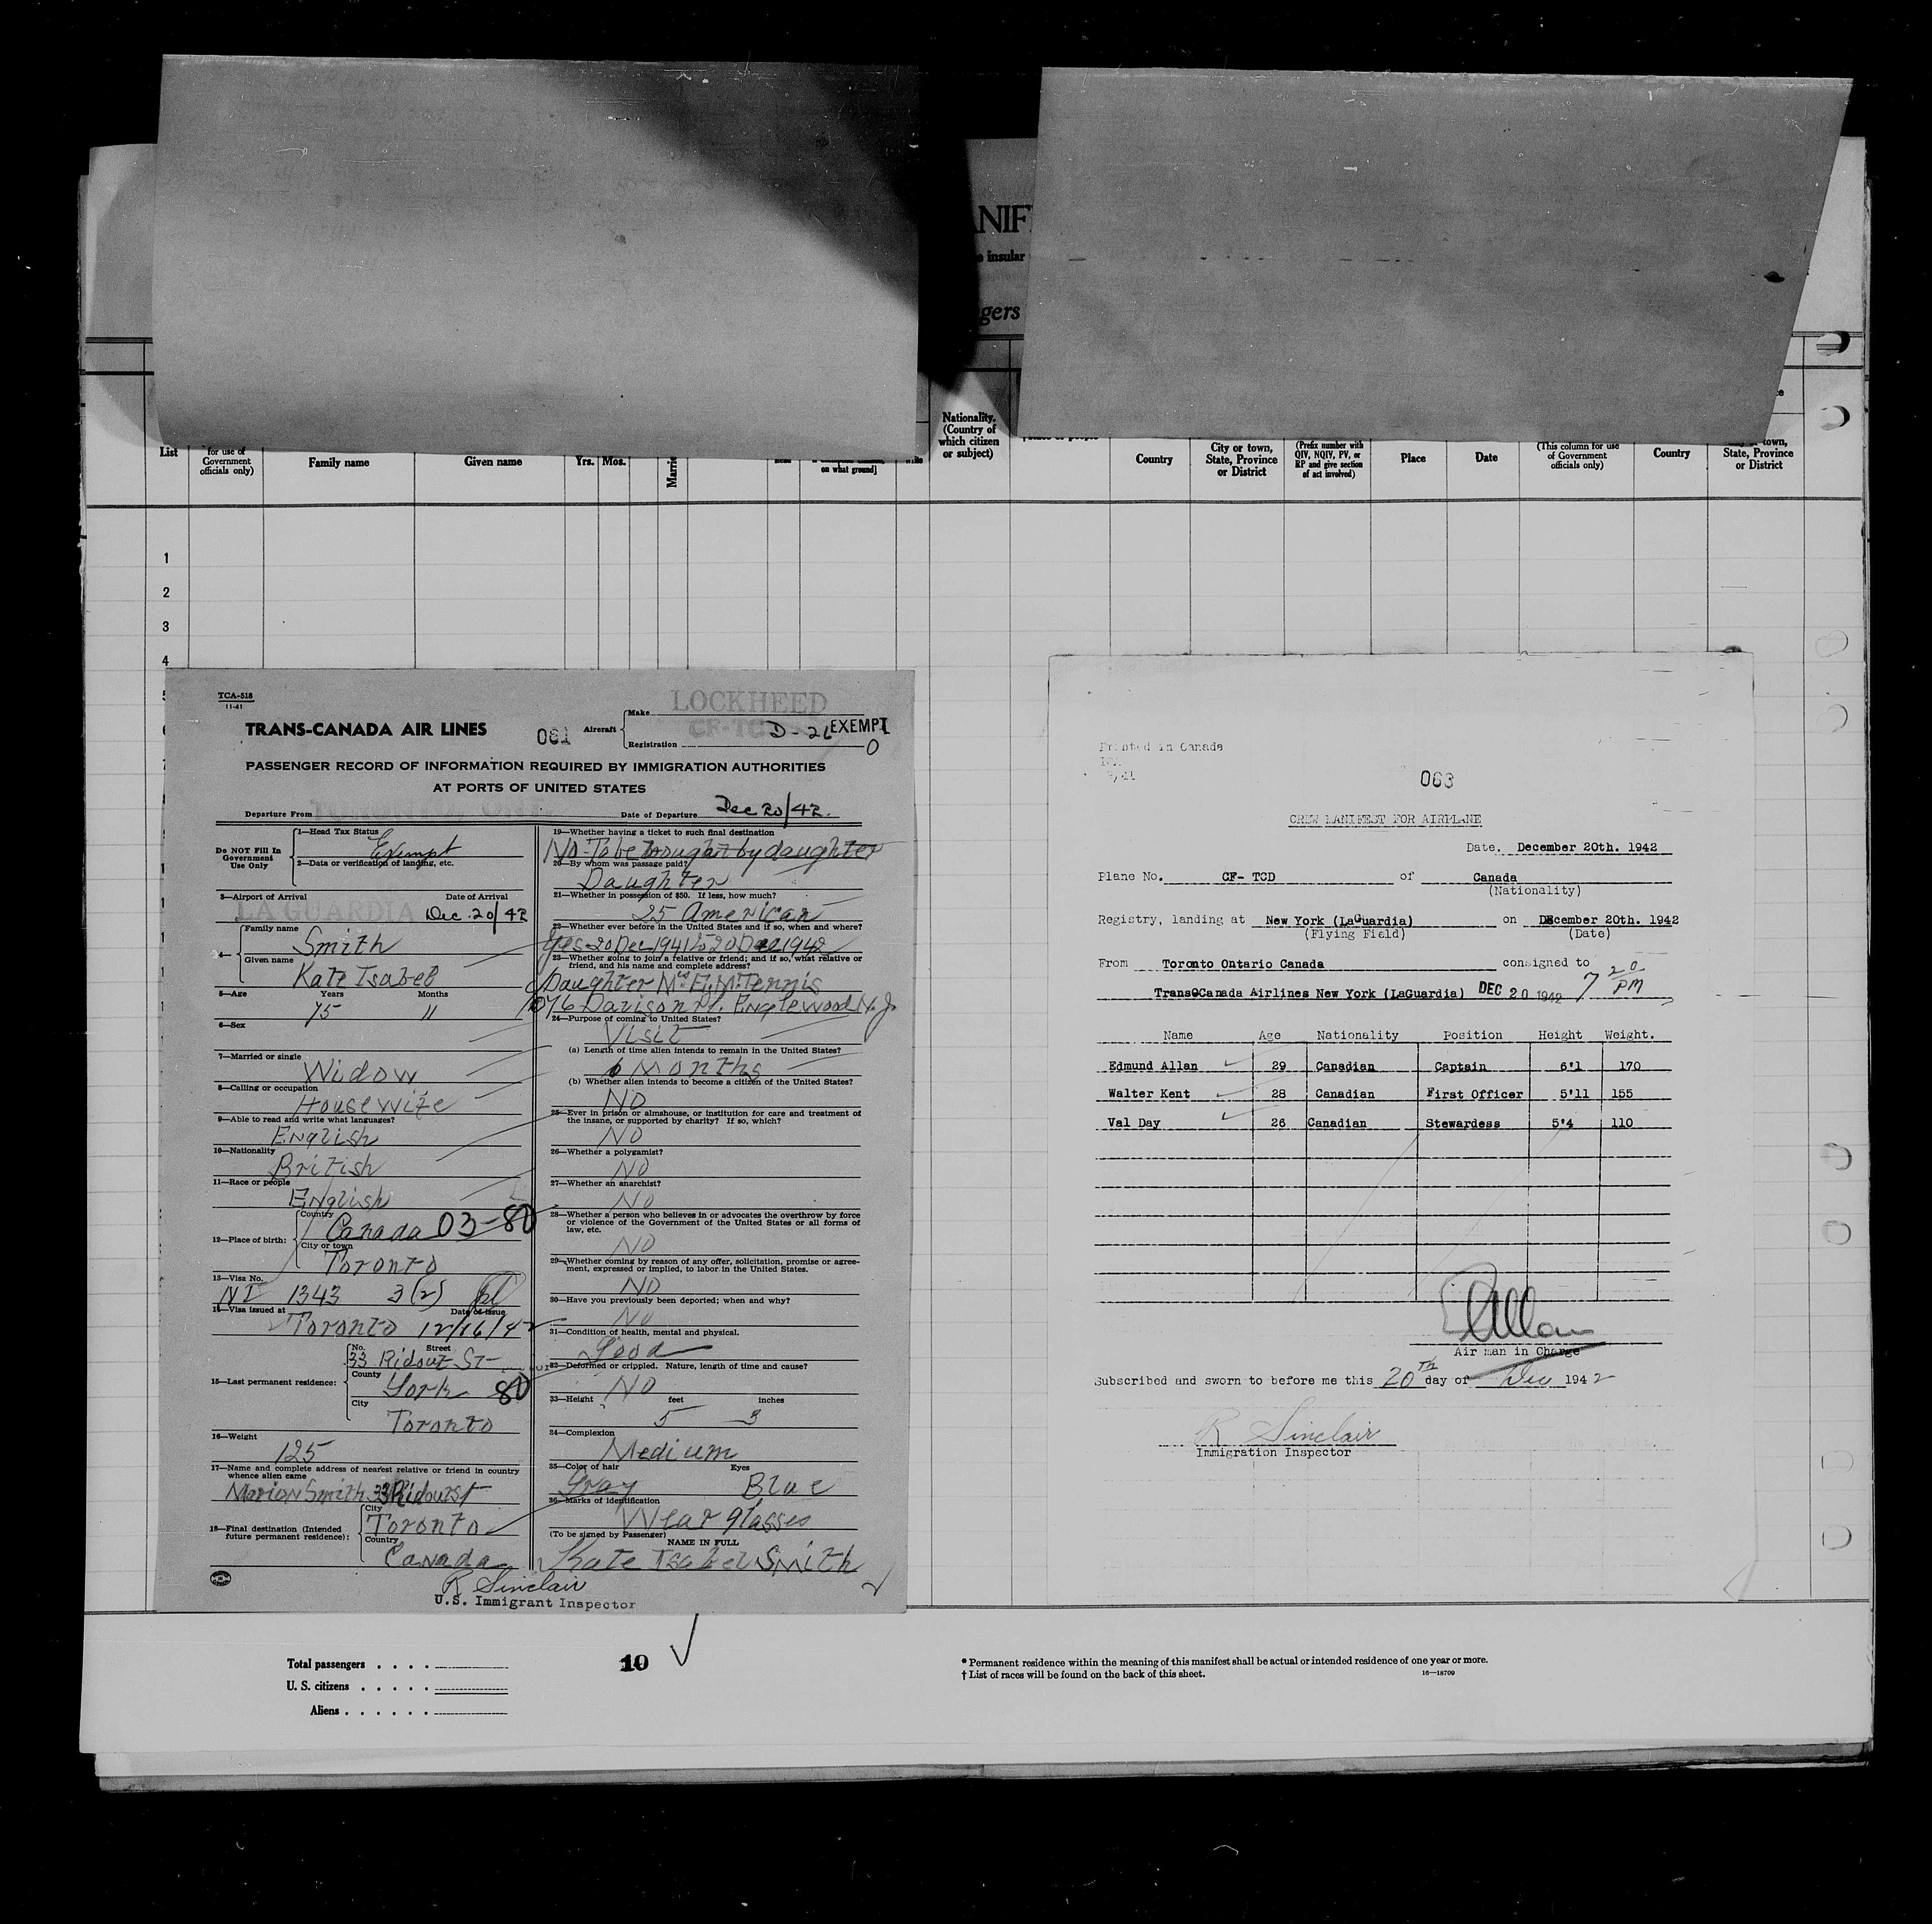 ANIF
insular
gers
List
for use of
Government
officials only)
Family name
Given name
Yrs. Mos.
Marrie
Read
on what ground]
Nationality.
(Country of
which citizen
or subject)
Country
City or town,
State, Province
or District
(Prefix number with
QIV, NQIV, PV, or
RP and give section
of act involved)
Place
Date
(This column for use
of Government
officials only)
Country
town,
State, Province
or District
1
2
3
4
TCA-518
11-41
TRANS-CANADA AIR LINES
061
Aircraft
Make LOCKHEED
Registration CF-TC D-2L EXEMPT
0
PASSENGER RECORD OF INFORMATION REQUIRED BY IMMIGRATION AUTHORITIES
AT PORTS OF UNITED STATES
Departure From
Date of Departure Dec 20/42.
Do NOT Fill In
Government
Use Only
1—Head Tax Status
Exempt
2—Data or verification of landing, etc.
3—Airport of Arrival Date of Arrival
LA GUARDIA Dec. 20/42
4—
Family name
Smith
Given name
Kate Isabel
5—Age Years Months
75 11
6—Sex
7—Married or single
Widow
8—Calling or occupation
Housewife
9—Able to read and write what languages?
English
10—Nationality
British
11—Race or people
English
12—Place of birth:
Country
Canada 03-80
City or town
Toronto
13—Visa No.
NI 1343 3(2)
14—Visa issued at Date of issue
Toronto 12/16/42
15—Last permanent residence:
No. Street
33 Ridout St
County
York 80
City
Toronto
16—Weight
125
17—Name and complete address of nearest relative or friend in country
whence alien came
Marion Smith 33 Ridoust
18—Final destination (Intended
future permanent residence):
City
Toronto
Country
Canada
19—Whether having a ticket to such final destination
No. To be brought by daughter
20—By whom was passage paid?
Daughter
21—Whether in possession of $50. If less, how much?
25 American
22—Whether ever before in the United States and if so, when and where?
Yes 20 Dec 1941 to 20 Dec 1942
23—Whether going to join a relative or friend; and if so, what relative or
friend, and his name and complete address?
Daughter
Davison Pl. Englewood N.J.
24—Purpose of coming to United States?
Visit
(a) Length of time alien intends to remain in the United States?
6 Months
(b) Whether alien intends to become a citizen of the United States?
NO
25—Ever in prison or almshouse, or institution for care and treatment of
the insane, or supported by charity? If so, which?
NO
26—Whether a polygamist?
NO
27—Whether an anarchist?
NO
28—Whether a person who believes in or advocates the overthrow by force
or violence of the Government of the United States or all forms of
law, etc.
NO
29—Whether coming by reason of any offer, solicitation, promise or agree-
ment, expressed or implied, to labor in the United States.
NO
30—Have you previously been deported; when and why?
NO
31—Condition of health, mental and physical.
Good
32—Deformed or crippled. Nature, length of time and cause?
NO
33—Height feet inches
5 3
34—Complexion
Medium
35—Color of hair Eyes
Gray Blue
36—Marks of identification
Wear glasses
(To be signed by Passenger)
NAME IN FULL
Kate Isabel Smith
R Sinclair
U.S. Immigrant Inspector
Printed in Canada
9/41
063
CREW MANIFEST FOR AIRPLANE
Date. December 20th. 1942
Plane No. CF- TCD of Canada
(Nationality)
Registry, landing at New York (LaGuardia) on December 20th. 1942
(Flying Field) (Date)
From Toronto Ontario Canada consigned to
Trans-Canada Airlines New York (LaGuardia) DEC 20 1942 7 20 PM
Name Age Nationality Position Height Weight.
Edmund Allan 29 Canadian Captain 6'1 170
Walter Kent 28 Canadian First Officer 5'11 155
Val Day 26 Canadian Stewardess 5'4 110
Allan
Air man in Charge
Subscribed and sworn to before me this 20th day of Dec 1942
R Sinclair
Immigration Inspector
Total passengers
U. S. citizens
Aliens
10
* Permanent residence within the meaning of this manifest shall be actual or intended residence of one year or more.
† List of races will be found on the back of this sheet.
16—18709